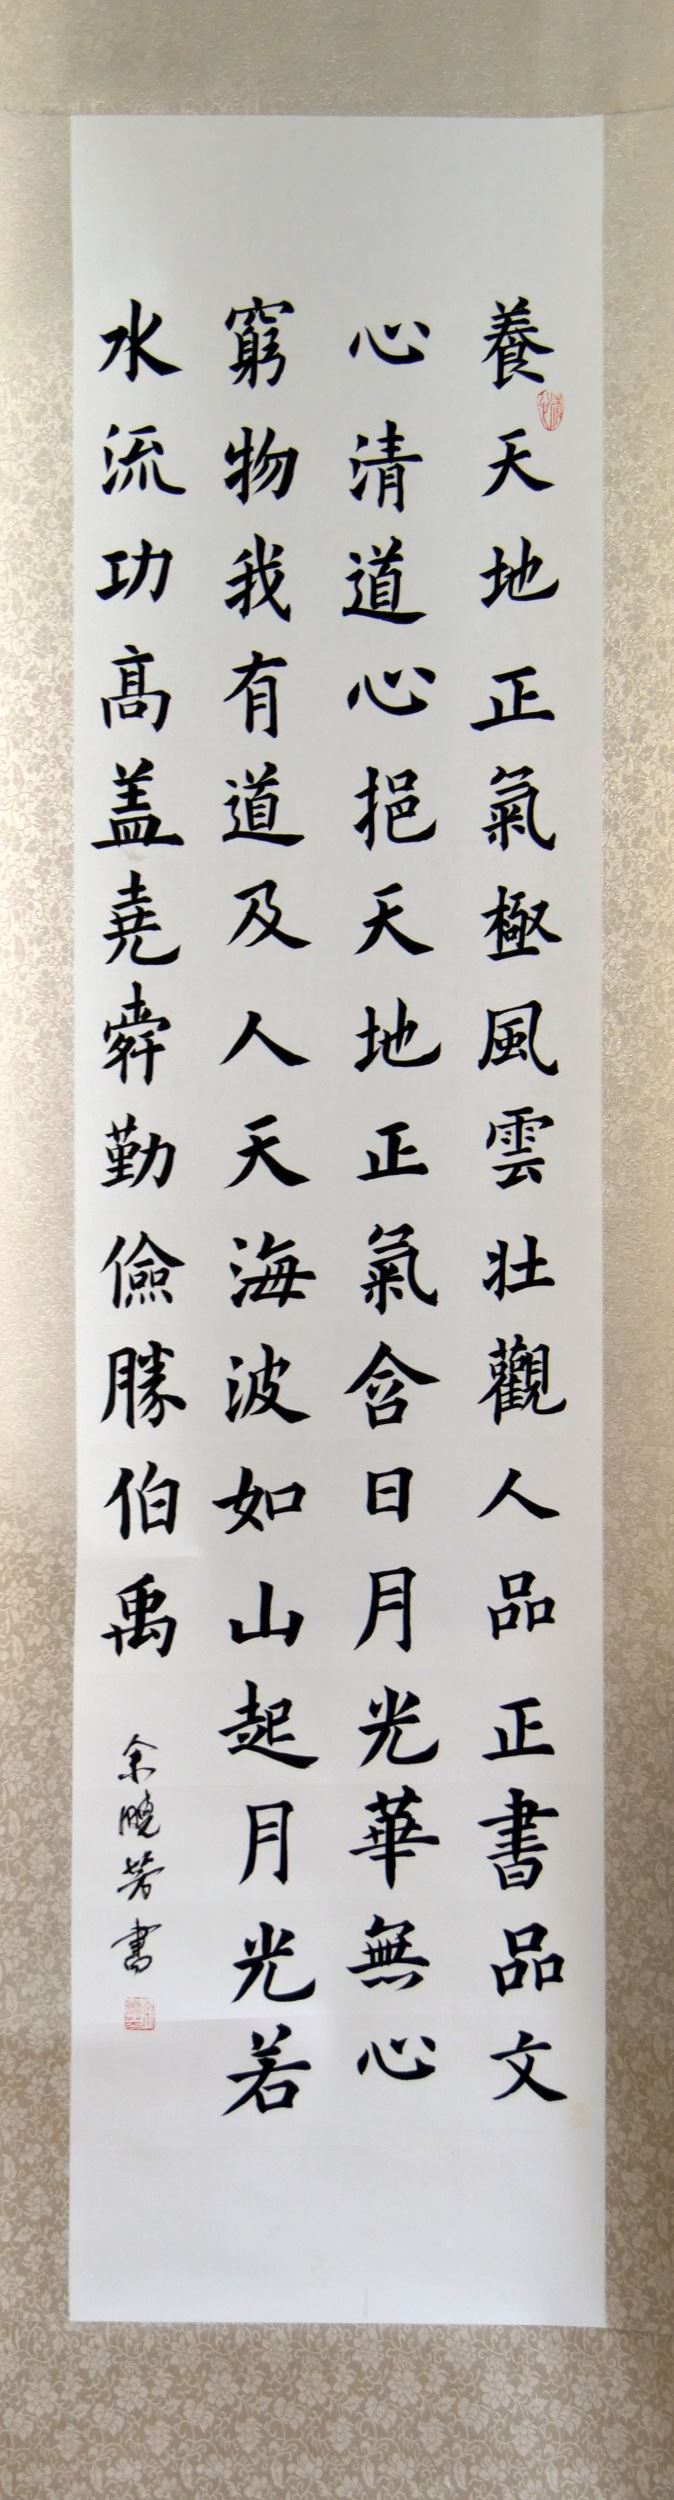 養天地正氣極風雲壯觀人品正書品文
心清道心挹天地正氣含日月光華無心
窮物我有道及人天海波如山起月光若
水流功高盖堯舜勤儉勝伯禹
余曉芳書